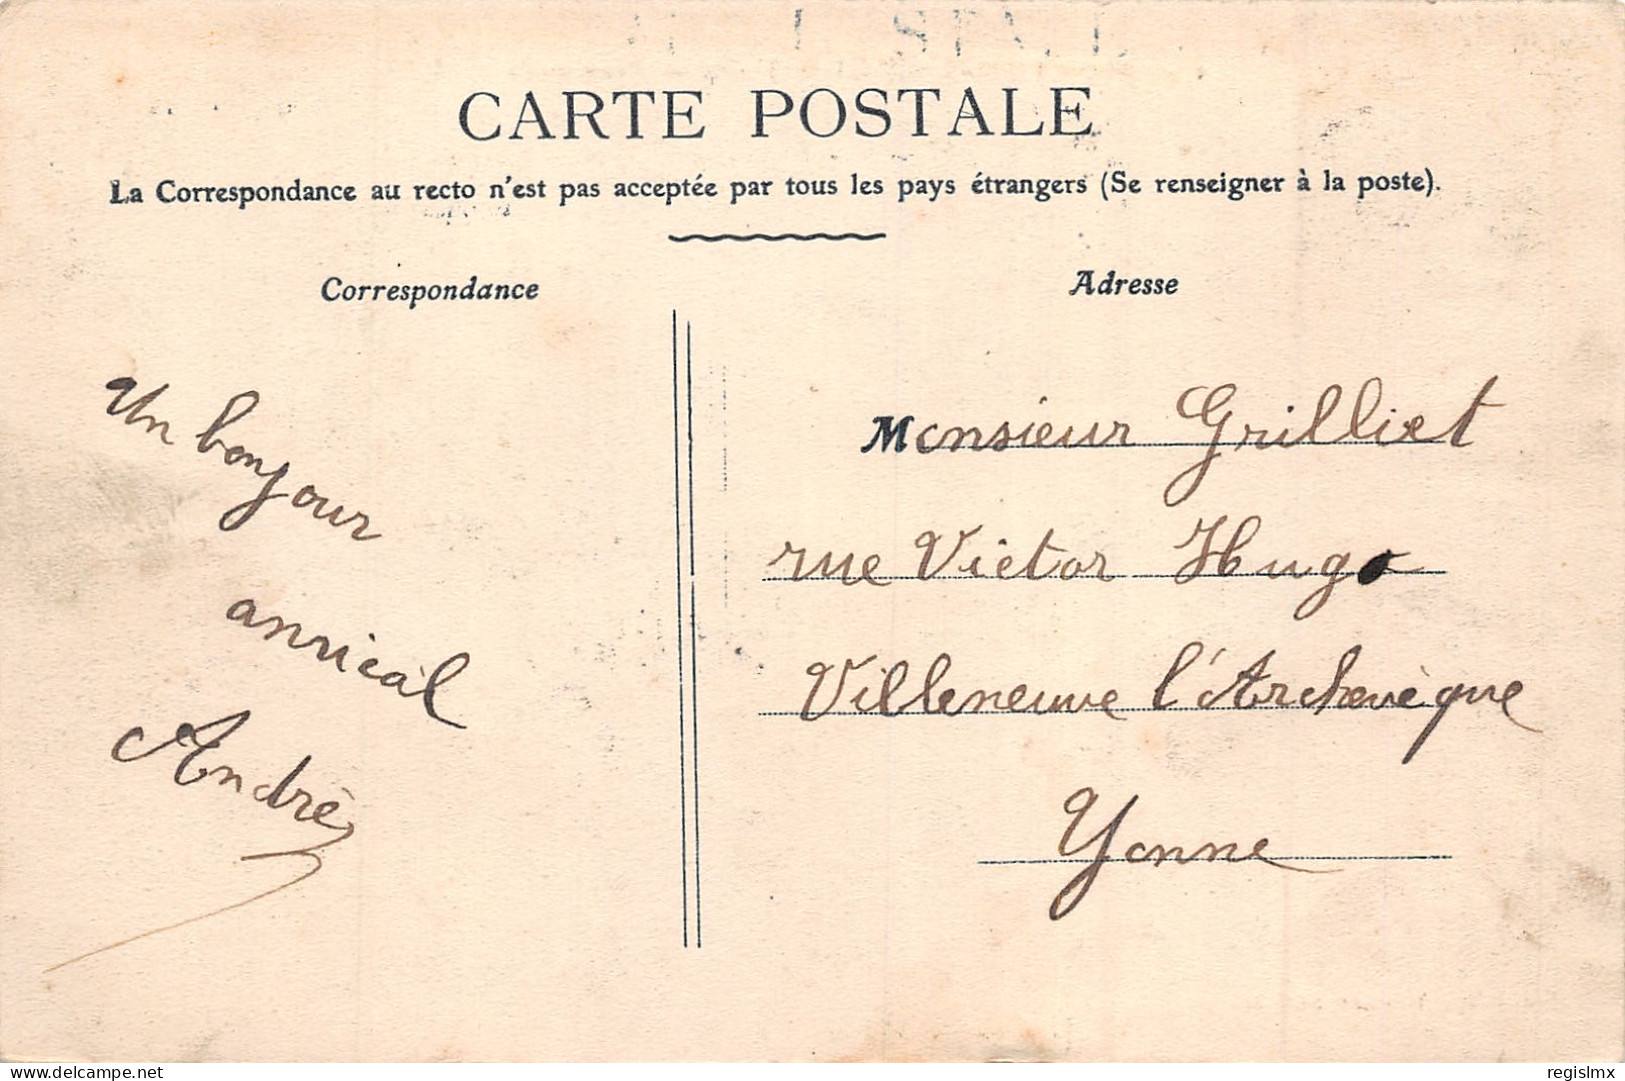 CARTE POSTALE
La Correspondance au recto n'est pas acceptée par tous les pays étrangers (Se renseigner à la poste).
Correspondance
Un bonjour
amical
André
Adresse
Monsieur Grilliet
rue Victor Hugo
Villeneuve l'Archevèque
Yonne
Delcampe.net
regislmx